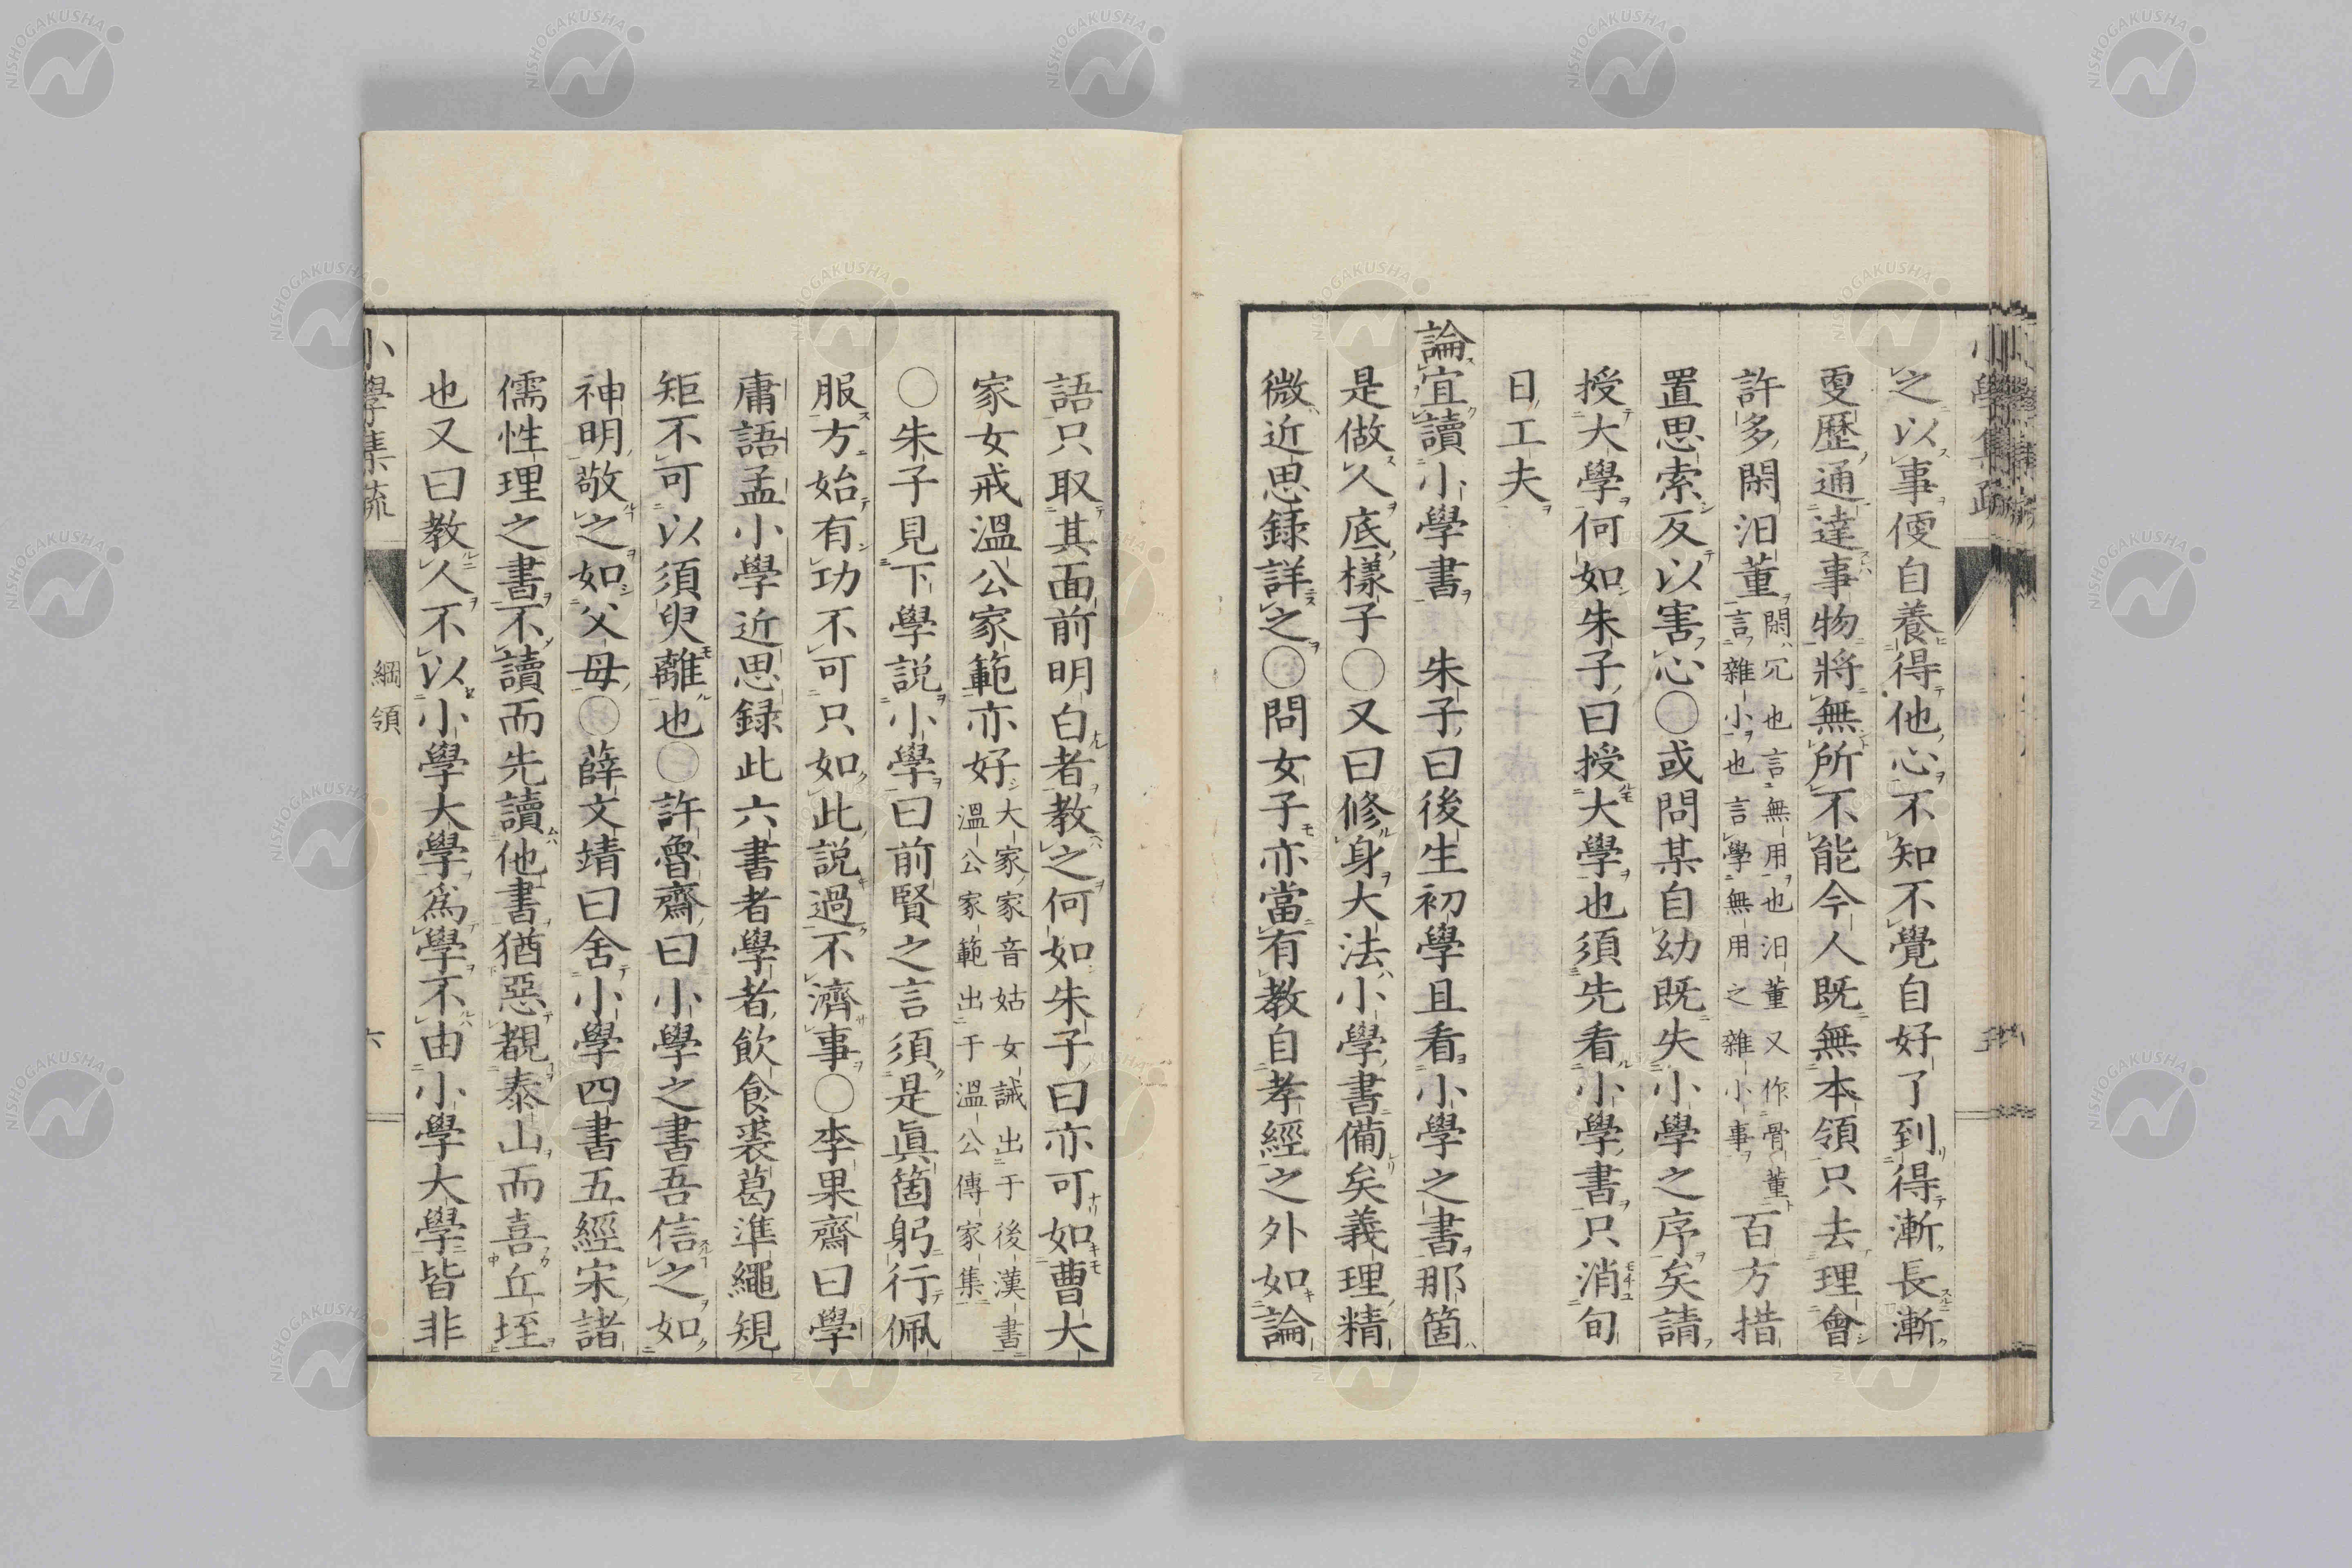 之以事便自養得他心不知不覺自好了到得漸長漸
更歷通達事物將無所不能今人既無本領只去理會
許多閑汨董閑冗也言無用也汨董又作骨董
言雜小也言學無用之雜小事百方措
置思索反以害心○或問某自幼既失小學之序矣請
授大學何如朱子曰授大學也須先看小學書只消旬
日工夫
論宜讀小學書　朱子曰後生初學且看小學之書那箇
是做人底樣子○又曰修身大法小學書備矣義理精
微近思録詳之○問女子亦當有教自孝經之外如論
語只取其面前明白者教之何如朱子曰亦可如曹大
家女戒溫公家範亦好大家家音姑女誡出于後漢書
溫公家範出于溫公傳家集
○朱子見下學說小學曰前賢之言須是眞箇躬行佩
服方始有功不可只如此說過不濟事○李果齋曰學
庸語孟小學近思録此六書者學者飲食裘葛準繩規
矩不可以須臾離也○許魯齋曰小學之書吾信之如
神明敬之如父母○薛文靖曰舍小學四書五經宋諸
儒性理之書不讀而先讀他書猶惡覩泰山而喜丘垤
也又曰教人不以小學大學爲學不由小學大學皆非
小學集疏　綱領　六